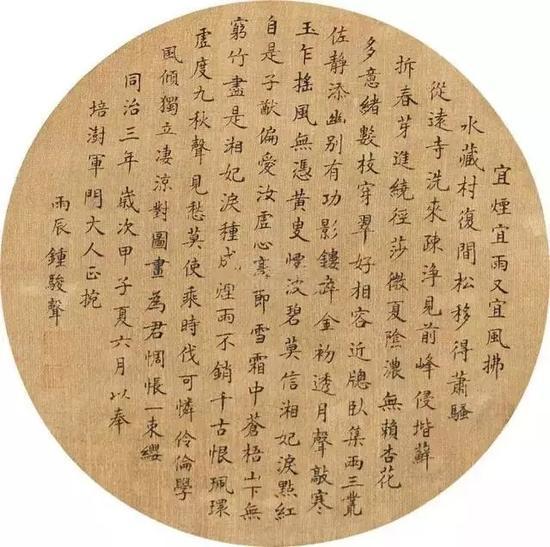 宜煙宜雨又宜風拂
水藏村復間松移得蕭騷
從遠寺洗來疎淨見前峰侵堦蘚
拆春芽迸繞徑莎微夏陰濃無賴杏花
多意緒數枝穿翠好相容近牕臥集雨三叢
佐靜添幽別有功影鏤碎金初透月聲敲寒
玉乍搖風無憑黃叟煙波碧莫信湘妃淚點紅
自是子猷偏愛汝虛心寒節雪霜中蒼梧山下無
窮竹盡是湘妃淚種成煙雨不銷千古恨珮環
虛度九秋聲見愁莫使乘時伐可憐伶倫學
鳳傾獨立凄涼對圖畫為君惆悵一束纓
同治三年歲次甲子夏六月以奉
培澍軍門大人正捥
雨辰鍾駿聲